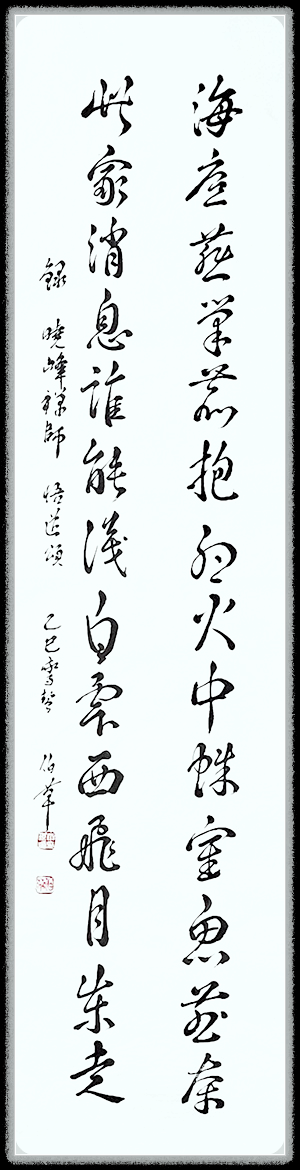 海底燕巢鹿抱卵火中蛛室魚煎茶
此家消息誰能識白雲西飛月東走
錄 曉峰禪師 悟道頌 乙巳